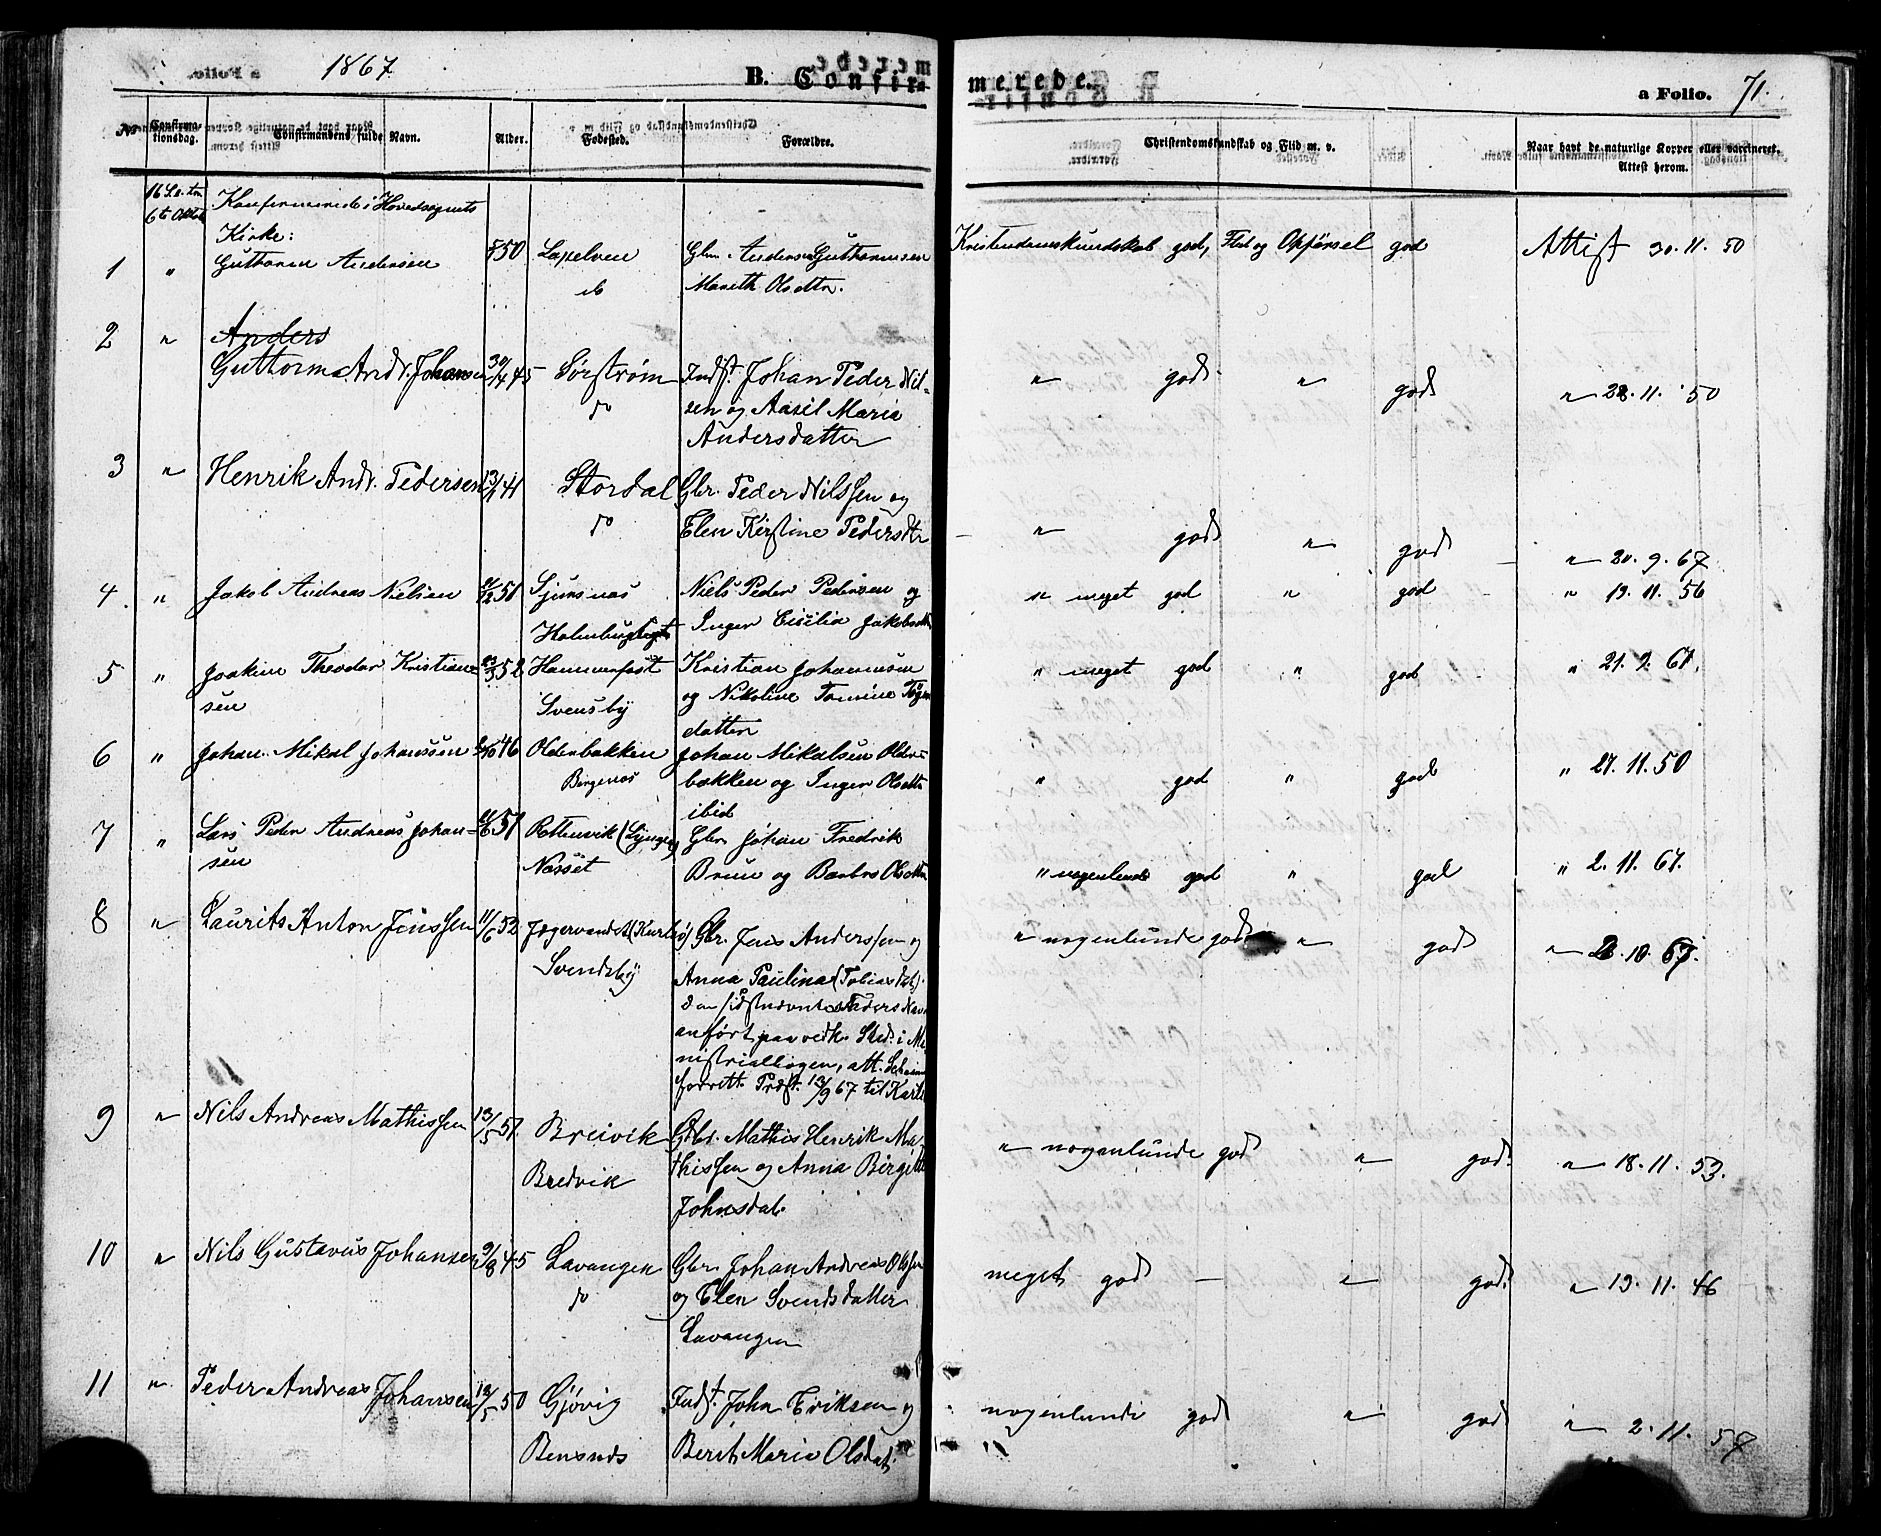 1867
B. Confir-
merede.
a Folio. 71.
No
Confirma-
tionsdag.
Confirmandens fulde Navn.
Alder.
Fødested.
Forældre.
Christendomskundskab og Flid m. v.
Naar havt de naturlige Kopper eller vaccineret.
Attest herom.
6te Oktbr
Konfirmerede i Hovedsognets
Kirke:
1 " Guttorm Andersen 50 Gbr. Anders Guttormsen
Mareth Olsdtr.
Kristendomskundskab god, Flid og Opførsel god Attest 30.11.50
2 " Anders
Guttorm Andr. Johansen 30/4 45 Sørstrøm Indst. Johan Peder Nil-
do sen og Aasil Maria
Andersdatter
" god " god " 28.11.50
3 " Henrik Andr. Pedersen 13/1 41 Stordal Gbr. Peder Nilssen og
do Elen Kirstine Pedersdtr
" god " god " 20.9.67
4 " Jakob Andreas Nielsen 51 Sjursnæs Niels Peder Pedersen og
Inger Cicilia Jakobsdtr
" meget god " god " 19.11.56
5 " Joakim Theodor Kristian- 52 Hammerfest Kristian Johannesen
sen Svensby og Nikoline Tomine
datter
" meget god " god " 21.9.67.
6 " Johan Mikal Johanssen 46 Olderbakken Johan Mikalsen Older-
bakken og Inger Olsdtr
ibid
" god " god " 27.11.50
7 " Lars Peder Andreas Johan- 51 Rottenvik (Lyngen) Gbr. Johan Fredrik
sen Næsset Bruun og Barbro Olsdtr
" nogenlunde god " god " 2.11.67.
8 " Laurits Anton Jenssen 11/6 52 Jægervandet (Karlsø) Gbr. Jens Anderssen og
Svendsby Anna Paulina (Tobiasdat).
den sidstnævntes Faders Navn
anført paa vedk. Sted i Mi-
nistrialbogen, att.
Præst. 13/9 67 til Karlsø
" nogenlunde god " god " 2.10.67.
9 " Nils Andreas Mathissen 13/5 51. Breivik Gbr. Mathis Henrik Ma-
Bredvik thissen og Anna Birgitte
Johnsdat.
" nogenlunde god " god. " 18.11.53.
10 " Nils Gustavus Johansen 9/8 45 Lavangen Gbr. Johan Andreas Olssen
do og Elen Svendsdatter
Lavangen
meget god — " god. " 19.11.46
11 " Peder Andreas Johansen 12/5 50 Gjøvig Indst. John Eriksen og
Bensnæs Berit Maria Olsdat.
nogenlunde god " god " 2.11.